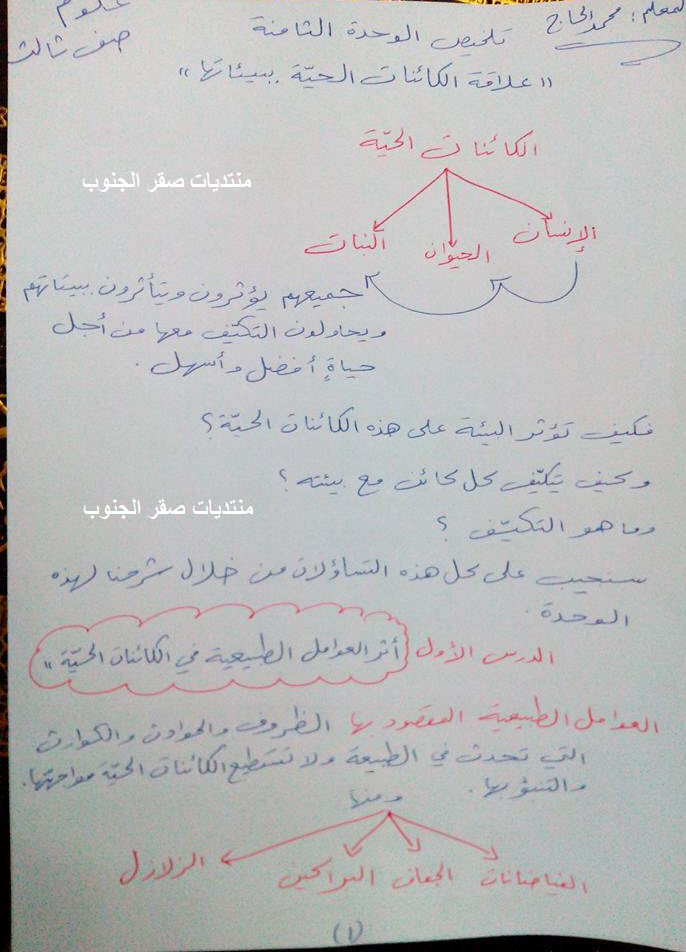 المعلم: محمد الحاج
علوم
صف ثالث
تلخيص الوحدة الثامنة
"علاقة الكائنات الحيّة ببيئاتها"
الكائنات الحيّة
منتديات صقر الجنوب
الإنسان الحيوان النبات
جميعهم يؤثرون ويتأثرون ببيئاتهم
ويحاولون التكيّف معها من أجل
حياةٍ أفضل وأسهل.
فكيف تؤثر البيئة على هذه الكائنات الحيّة؟
وكيف يتكيّف كل كائن مع بيئته؟
منتديات صقر الجنوب
وما هو التكيّف؟
سنجيب على كل هذه التساؤلات من خلال شرحنا لهذه
الوحدة.
الدرس الأول أثر العوامل الطبيعية في الكائنات الحيّة"
العوامل الطبيعية المقصود بها الظروف والحوادث والكوارث
التي تحدث في الطبيعة ولا تستطيع الكائنات الحيّة مواجهتها
والتنبؤ بها.
ومنها
الفياضانات الجفاف البراكين الزلازل
(1)